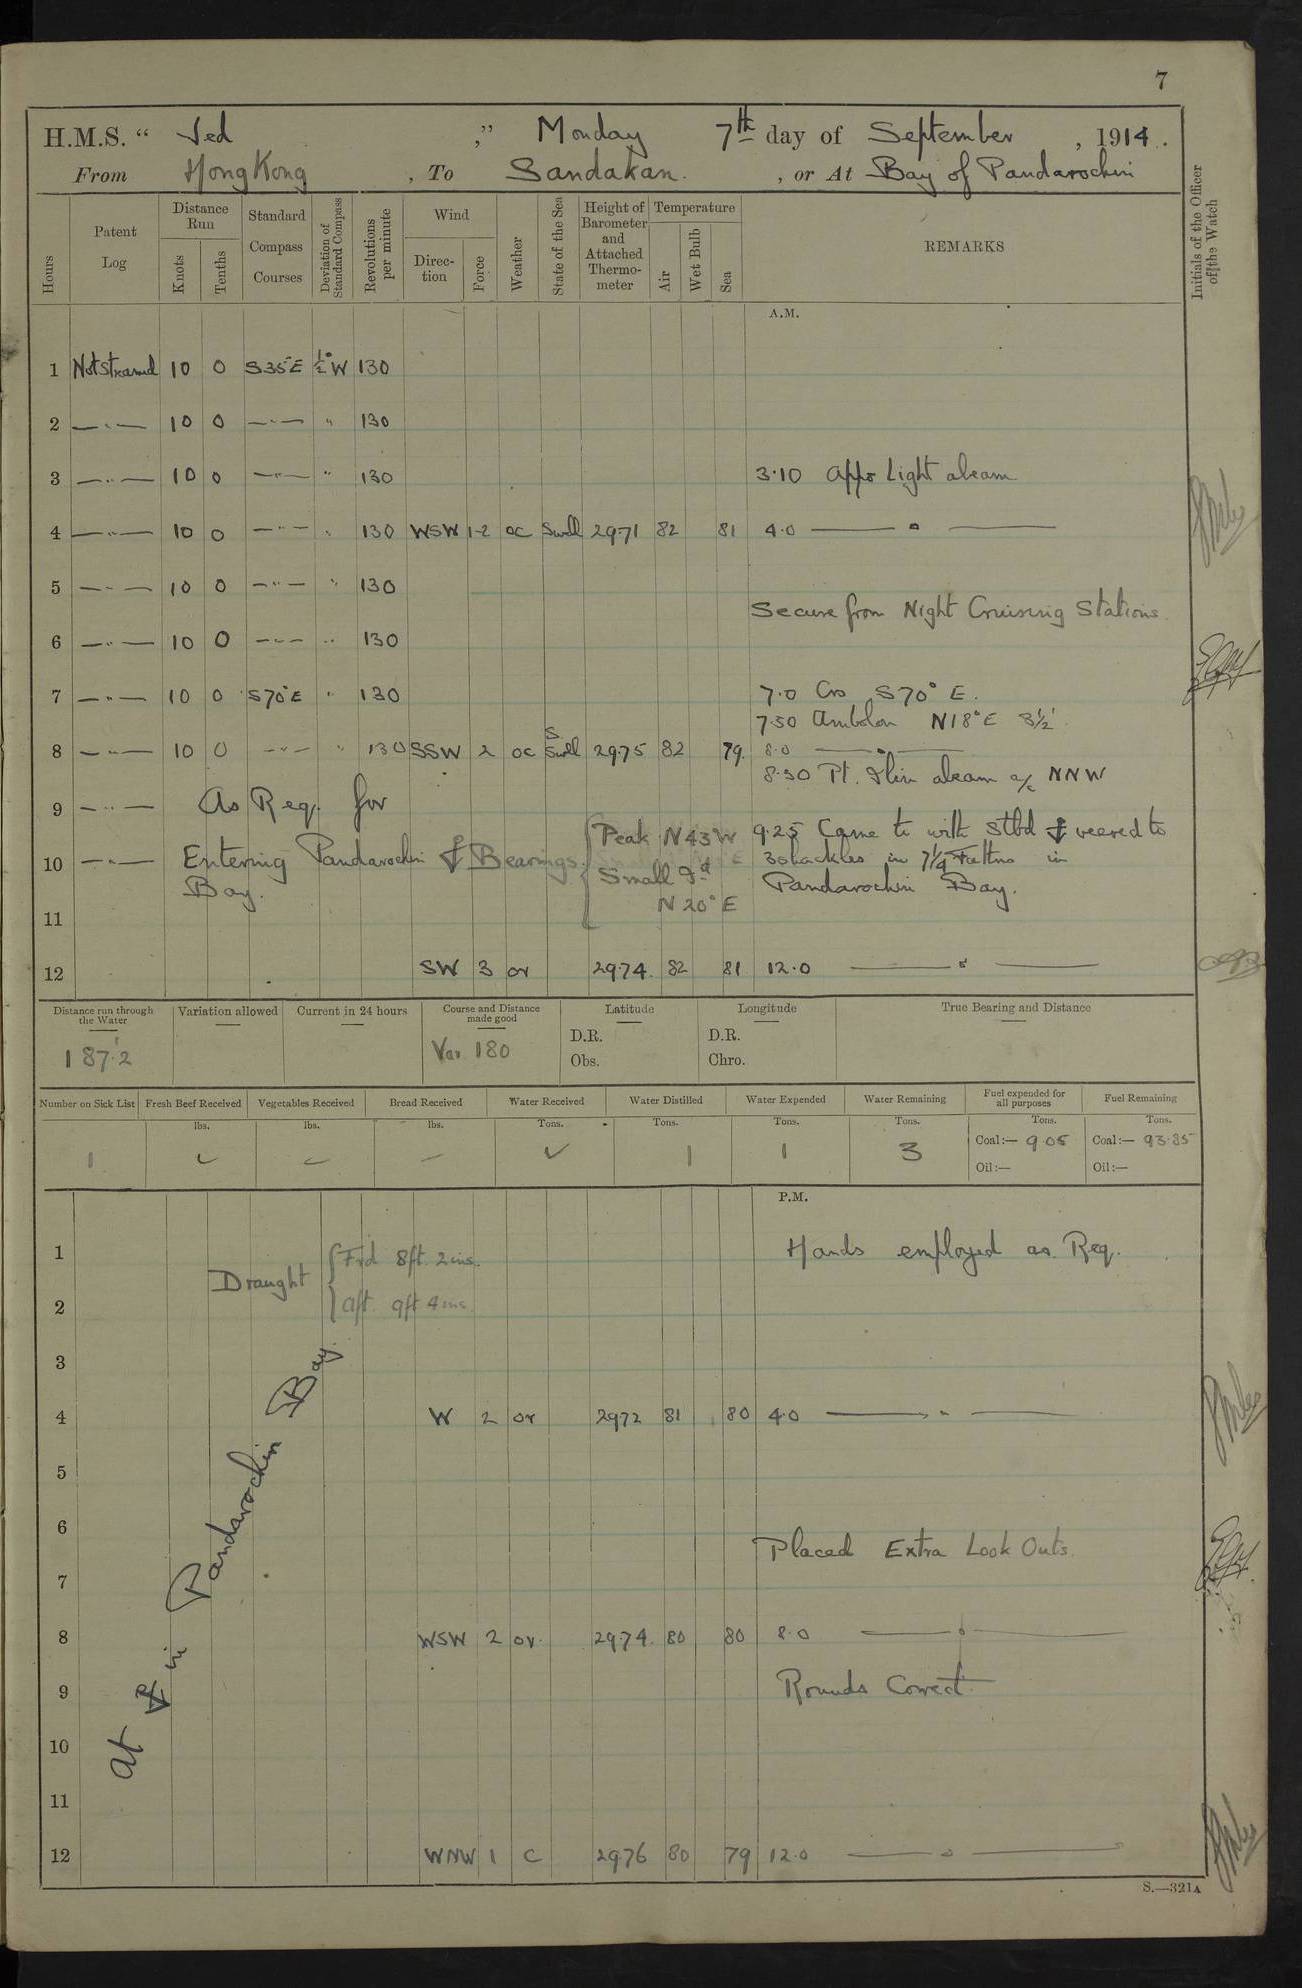 7
H.M.S. “ Jed ” Monday 7th day of September , 1914.
From Hong Kong , To Sandakan. , or At Bay of Pandarochin
Hours Patent Log Distance Run Knots Tenths Standard Compass Courses Deviation of Standard Compass Revolutions per minute Wind Direction Force Weather State of the Sea Height of Barometer and Attached Thermometer Temperature Air Wet Bulb Sea REMARKS Initials of the Officer of the Watch
A.M.
1 Not streamed 10 0 S35°E ½°W 130
2 —"— 10 0 —"— " 130
3 —"— 10 0 —"— " 130 3.10 Appo Light abeam
4 —"— 10 0 —"— " 130 WSW 1-2 oc Swell 29.71 82 81 4.0 ——— " ———
5 —"— 10 0 —"— " 130
Secure from Night Cruising Stations.
6 —"— 10 0 —"— " 130
7 —"— 10 0 S70°E " 130 7.0 Co S70° E.
7.50 Ambolon N18°E 8½'
8 —"— 10 0 —"— " 130 SSW 2 oc S Swell 29.75 82 79. 8.0 ——— " ———
8.30 Pt. Ilin abeam a/c NNW
9 —"— As Req. for
Peak N43W 9.25 Came to with Stbd ⚓ veered to
10 —"— Entering Pandarochin ⚓ Bearings. 3 shackles in 7¼ Fathms in
Bay. Small Id Pandarochin Bay.
N 20° E
11
12 SW 3 or 29.74. 82 81 12.0 ——— " ———
Distance run through the Water Variation allowed Current in 24 hours Course and Distance made good Latitude Longitude True Bearing and Distance
187.2 Var 180 D.R. D.R.
Obs. Chro.
Number on Sick List Fresh Beef Received Vegetables Received Bread Received Water Received Water Distilled Water Expended Water Remaining Fuel expended for all purposes Fuel Remaining
lbs. lbs. lbs. Tons. Tons. Tons. Tons. Tons. Tons.
1 1 1 3 Coal:— 9.05 Coal:— 93.85
Oil:— Oil:—
P.M.
1 Hands employed as Req.
Draught Frd 8ft. 2ins.
2 Aft. 9ft 4ins
3
4 W 2 or 29.72 81 80 4.0 ——— " ———
5
6
Placed Extra Look Outs.
7
8 WSW 2 or. 29.74. 80 80 8.0 ——— " ———
9 Rounds Correct.
10
11
12 WNW 1 c 29.76 80 79 12.0 ——— " ———
At ⚓ in Pandarochin Bay.
S.—321A